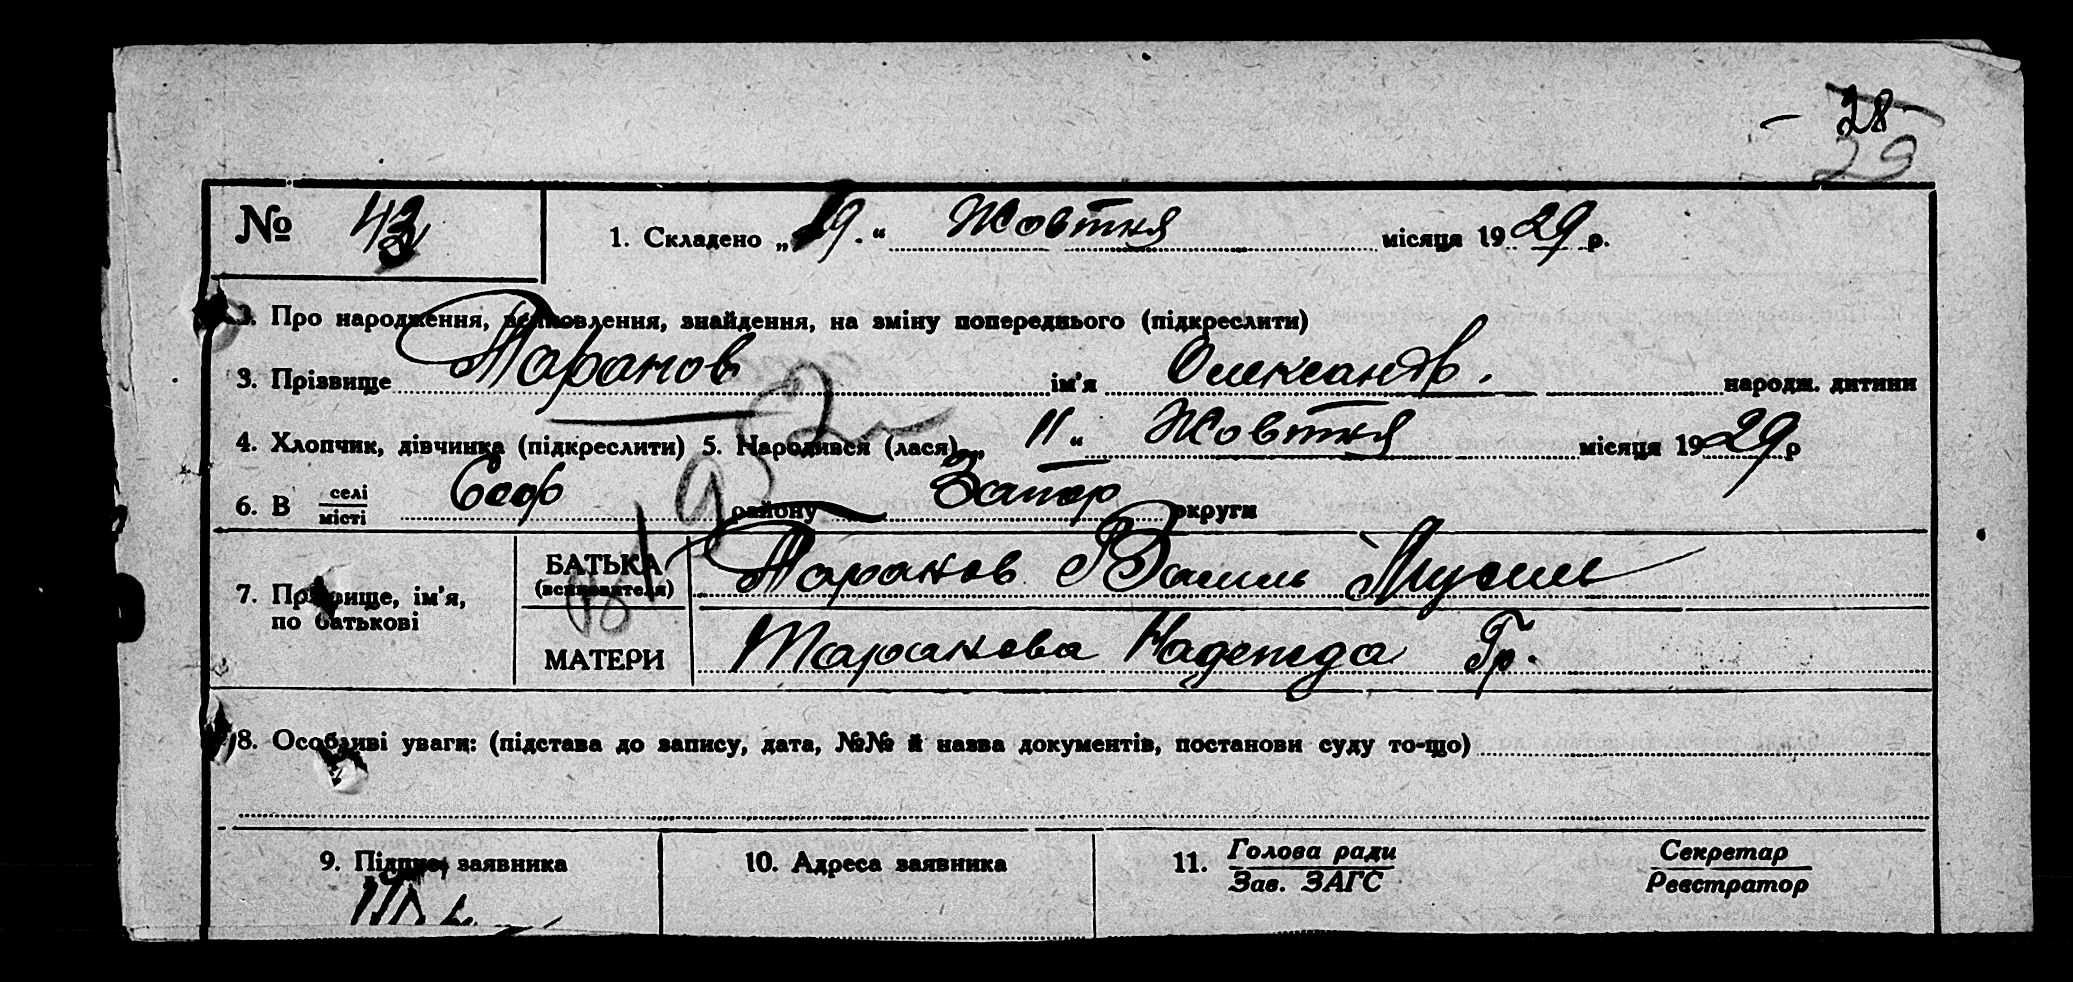 - 28 -
29
№ 43
1. Складено „19.“ Жовтня місяця 1929 р.
2. Про народження, всиновлення, знайдення, на зміну попереднього (підкреслити)
3. Прізвище Таранов ім'я Олександр. народж. дитини
4. Хлопчик, дівчинка (підкреслити) 5. Народився (лася) „11“ Жовтня місяця 1929 р
6. В селі місті Софр району Запор округи
7. Прізвище, ім'я, по батькові
БАТЬКА (всиновителя) Таранов Василь
МАТЕРИ Таранова Надежда Гр.
8. Особливі уваги: (підстава до запису, дата, №№ й назва документів, постанови суду то-що)
9. Підпис заявника
10. Адреса заявника
11. Голова ради Зав. ЗАГС
Секретар Реєстратор